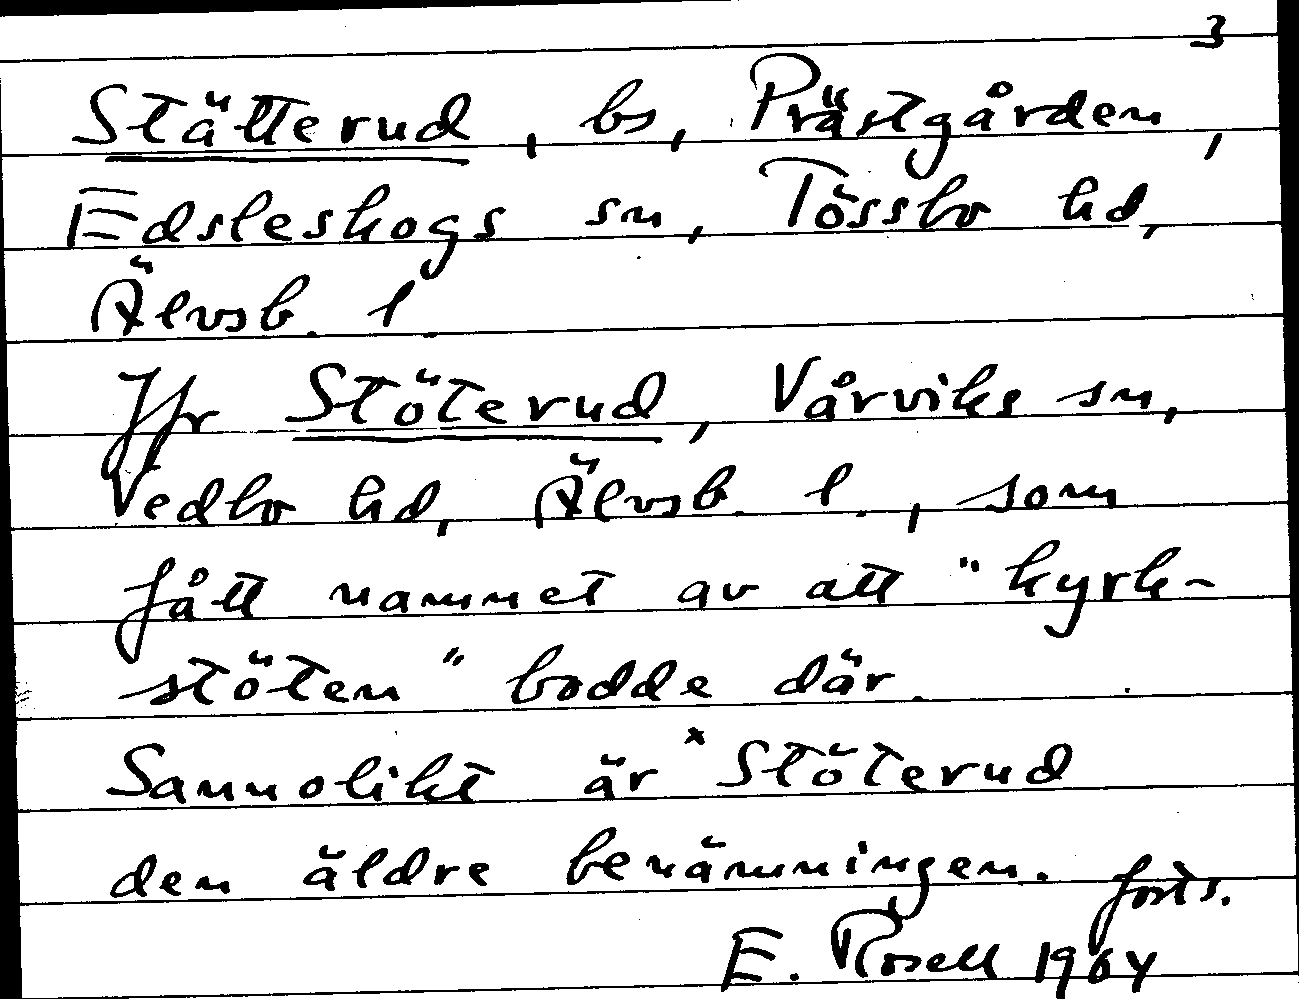 3
Stätterud, bs, Prästgården,
Edsleskogs sn, Tössbo hd,
Älvsb. l.
Jfr Stöterud, Vårviks sn,
Vedbo hd, Älvsb. l., som
fått namnet av att "kyrk-
stöten" bodde där.
Sannolikt är *Stöterud
den äldre benämningen. forts.
E. Rosell 1964